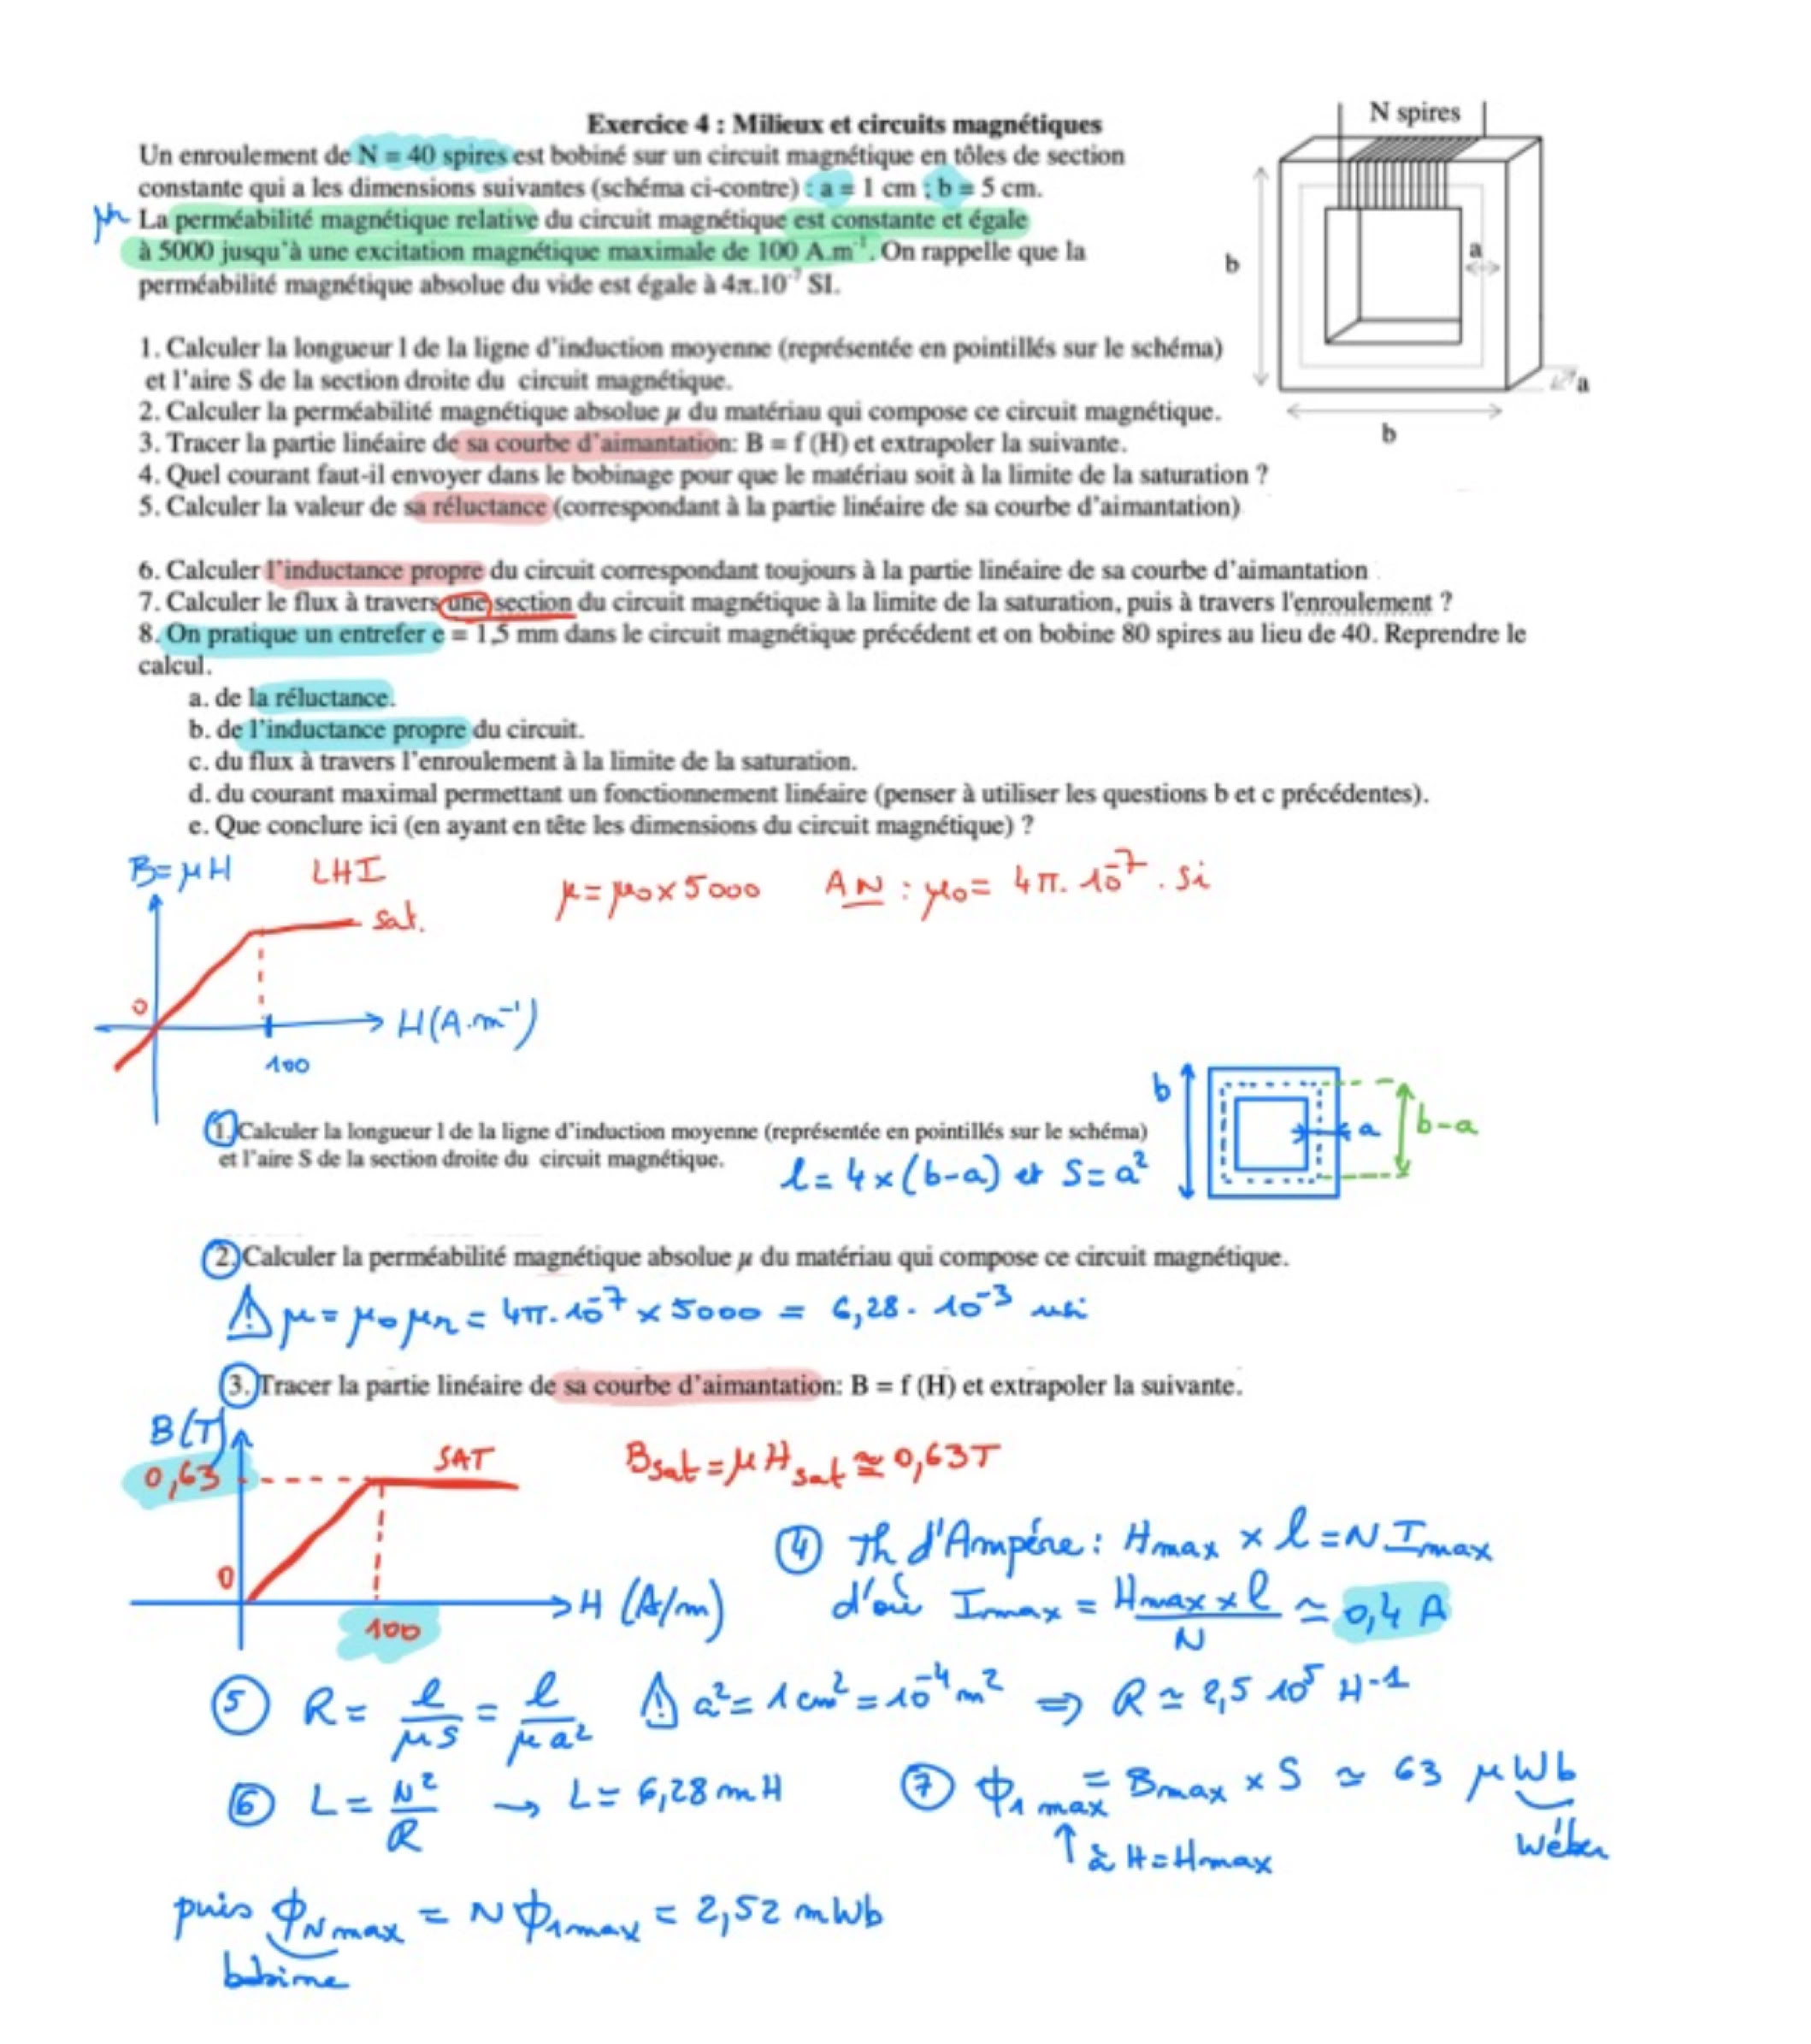 N spires
Exercice 4 : Milieux et circuits magnétiques
Un enroulement de N = 40 spires est bobiné sur un circuit magnétique en tôles de section
constante qui a les dimensions suivantes (schéma ci-contre) : a = 1 cm ; b = 5 cm.
μr La perméabilité magnétique relative du circuit magnétique est constante et égale
à 5000 jusqu'à une excitation magnétique maximale de 100 A.m⁻¹. On rappelle que la
perméabilité magnétique absolue du vide est égale à 4π.10⁻⁷ SI.
b
a
a
b
1. Calculer la longueur l de la ligne d'induction moyenne (représentée en pointillés sur le schéma)
et l'aire S de la section droite du circuit magnétique.
2. Calculer la perméabilité magnétique absolue μ du matériau qui compose ce circuit magnétique.
3. Tracer la partie linéaire de sa courbe d'aimantation: B = f (H) et extrapoler la suivante.
4. Quel courant faut-il envoyer dans le bobinage pour que le matériau soit à la limite de la saturation ?
5. Calculer la valeur de sa réluctance (correspondant à la partie linéaire de sa courbe d'aimantation)
6. Calculer l'inductance propre du circuit correspondant toujours à la partie linéaire de sa courbe d'aimantation
7. Calculer le flux à travers une section du circuit magnétique à la limite de la saturation, puis à travers l'enroulement ?
8. On pratique un entrefer e = 1,5 mm dans le circuit magnétique précédent et on bobine 80 spires au lieu de 40. Reprendre le
calcul.
a. de la réluctance.
b. de l'inductance propre du circuit.
c. du flux à travers l'enroulement à la limite de la saturation.
d. du courant maximal permettant un fonctionnement linéaire (penser à utiliser les questions b et c précédentes).
e. Que conclure ici (en ayant en tête les dimensions du circuit magnétique) ?
B=μH LHI μ=μ0×5000 AN : μ0= 4π.10⁻⁷. Si
sat.
0
H(A.m⁻¹)
100
b
a
b-a
1. Calculer la longueur l de la ligne d'induction moyenne (représentée en pointillés sur le schéma)
et l'aire S de la section droite du circuit magnétique.
l= 4×(b-a) et S= a²
2. Calculer la perméabilité magnétique absolue μ du matériau qui compose ce circuit magnétique.
⚠ μ= μ0 μr = 4π.10⁻⁷ × 5000 = 6,28. 10⁻³ usi
3. Tracer la partie linéaire de sa courbe d'aimantation: B = f (H) et extrapoler la suivante.
B(T)
0,63
SAT
Bsat = μ Hsat ≅ 0,63T
0
100
H (A/m)
④ Th d'Ampére : Hmax × l = N Imax
d'où Imax = Hmax × l / N ≃ 0,4 A
⑤ R= l/μS = l/μa² ⚠ a²= 1cm² = 10⁻⁴ m² ⇒ R ≃ 2,5 10⁵ H-1
⑥ L= N²/R → L= 6,28 mH
⑦ ϕ1 max = Bmax × S ≃ 63 μWb
↑ à H=Hmax
Wéber
puis ϕN max = N ϕ1max = 2,52 mWb
bobine